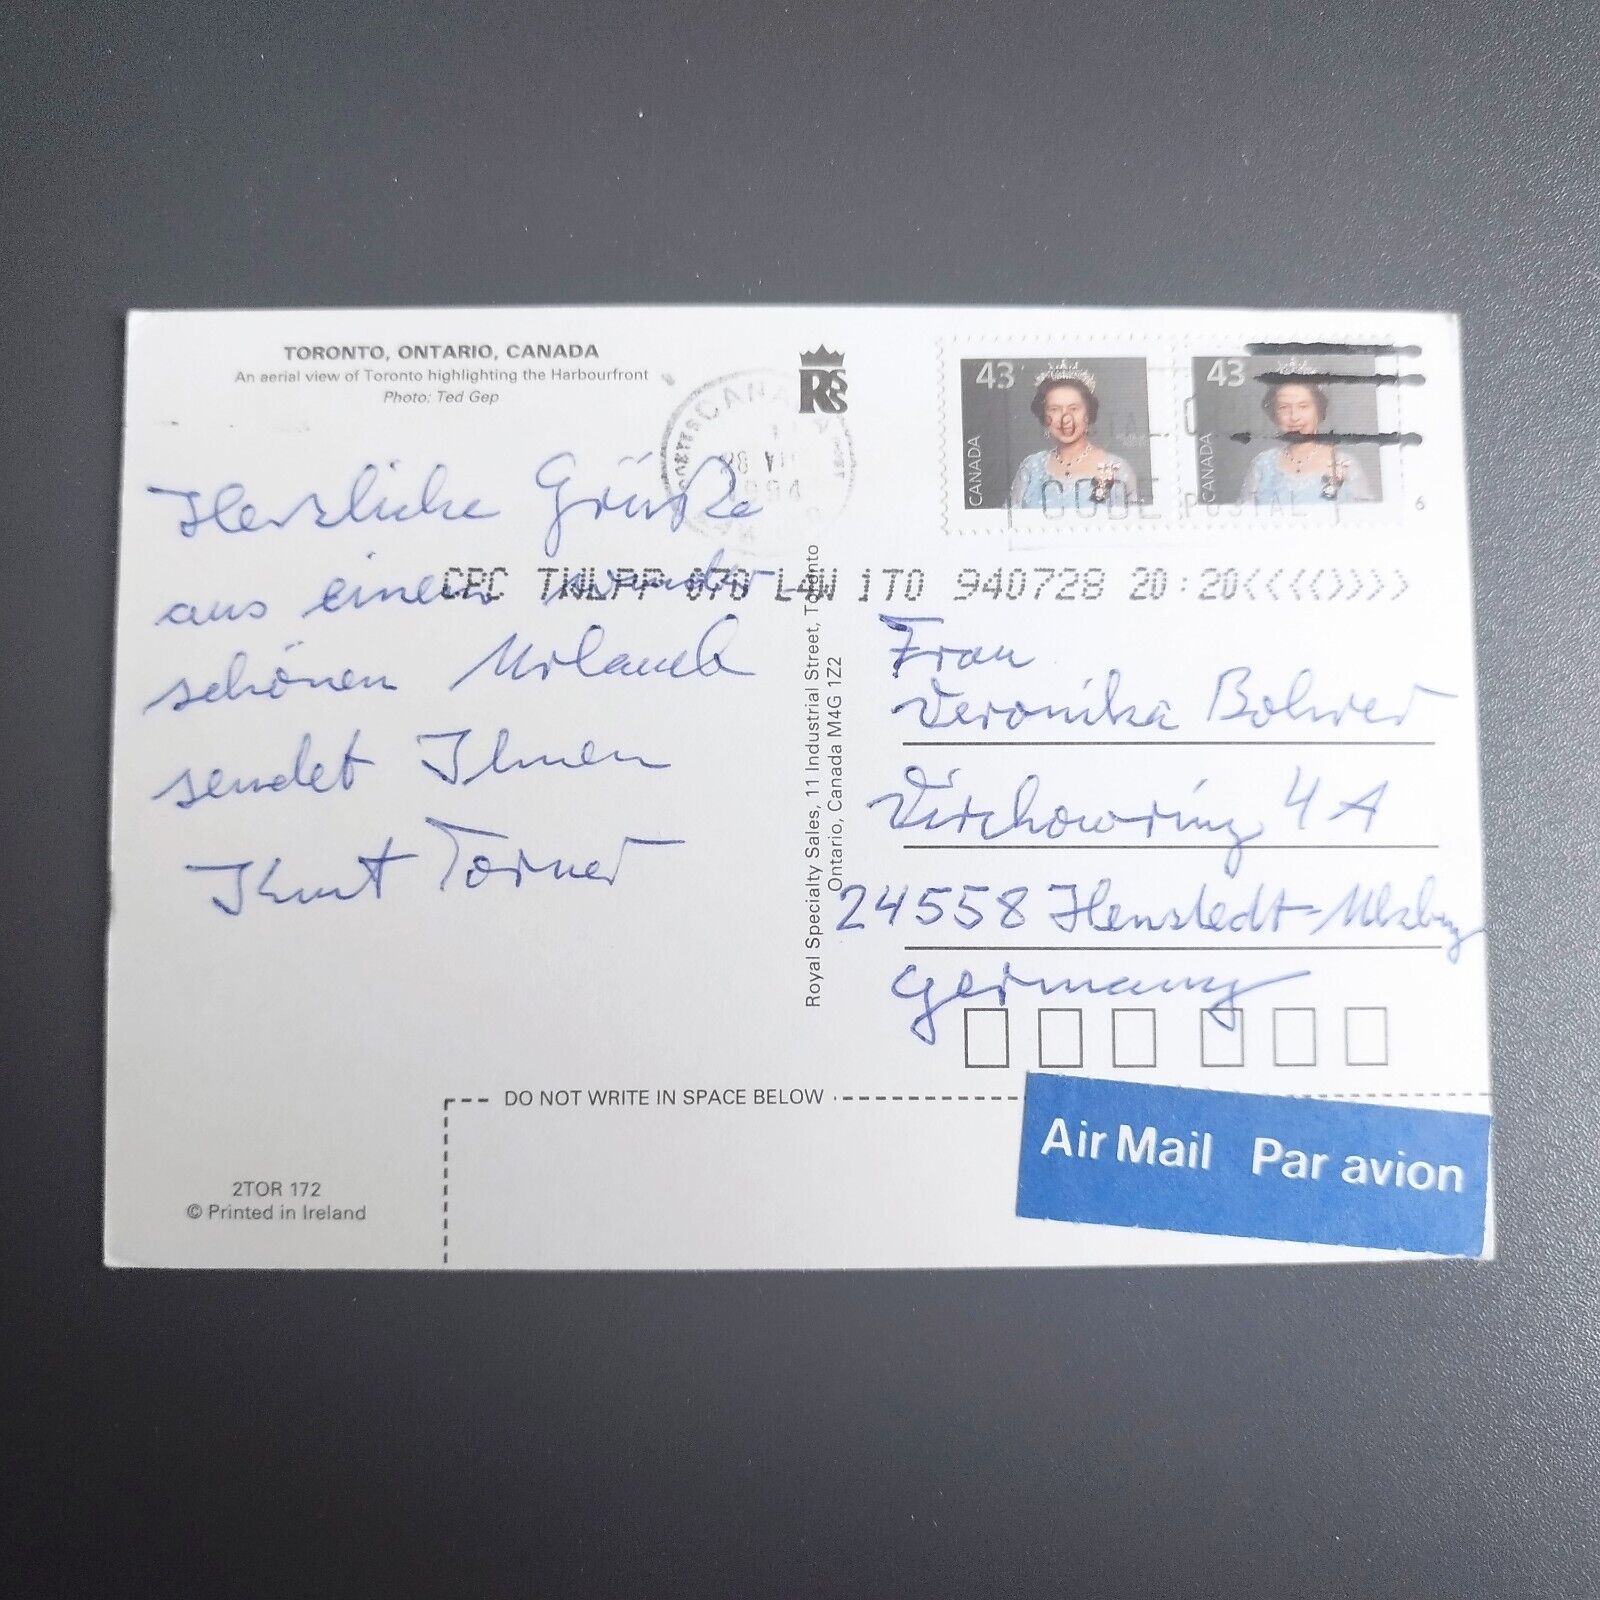 TORONTO, ONTARIO, CANADA
An aerial view of Toronto highlighting the Harbourfront
Photo: Ted Gep
Herzliche Grüße
aus einem wunder-
schönen Urlaub
sendet Ihnen
Kurt Torner
2TOR 172
© Printed in Ireland
DO NOT WRITE IN SPACE BELOW
Royal Specialty Sales, 11 Industrial Street, Toronto
Ontario, Canada M4G 1Z2
RSS
CANADA
1994
43
CANADA
43
CANADA
CODE POSTAL
6
CPC 070 L4W 1T0 940728 20:20<<<<>>>>
Frau
Veronika Bohrer
Virchowring 4A
24558 Henstedt-Ulzburg
Germany
Air Mail Par avion